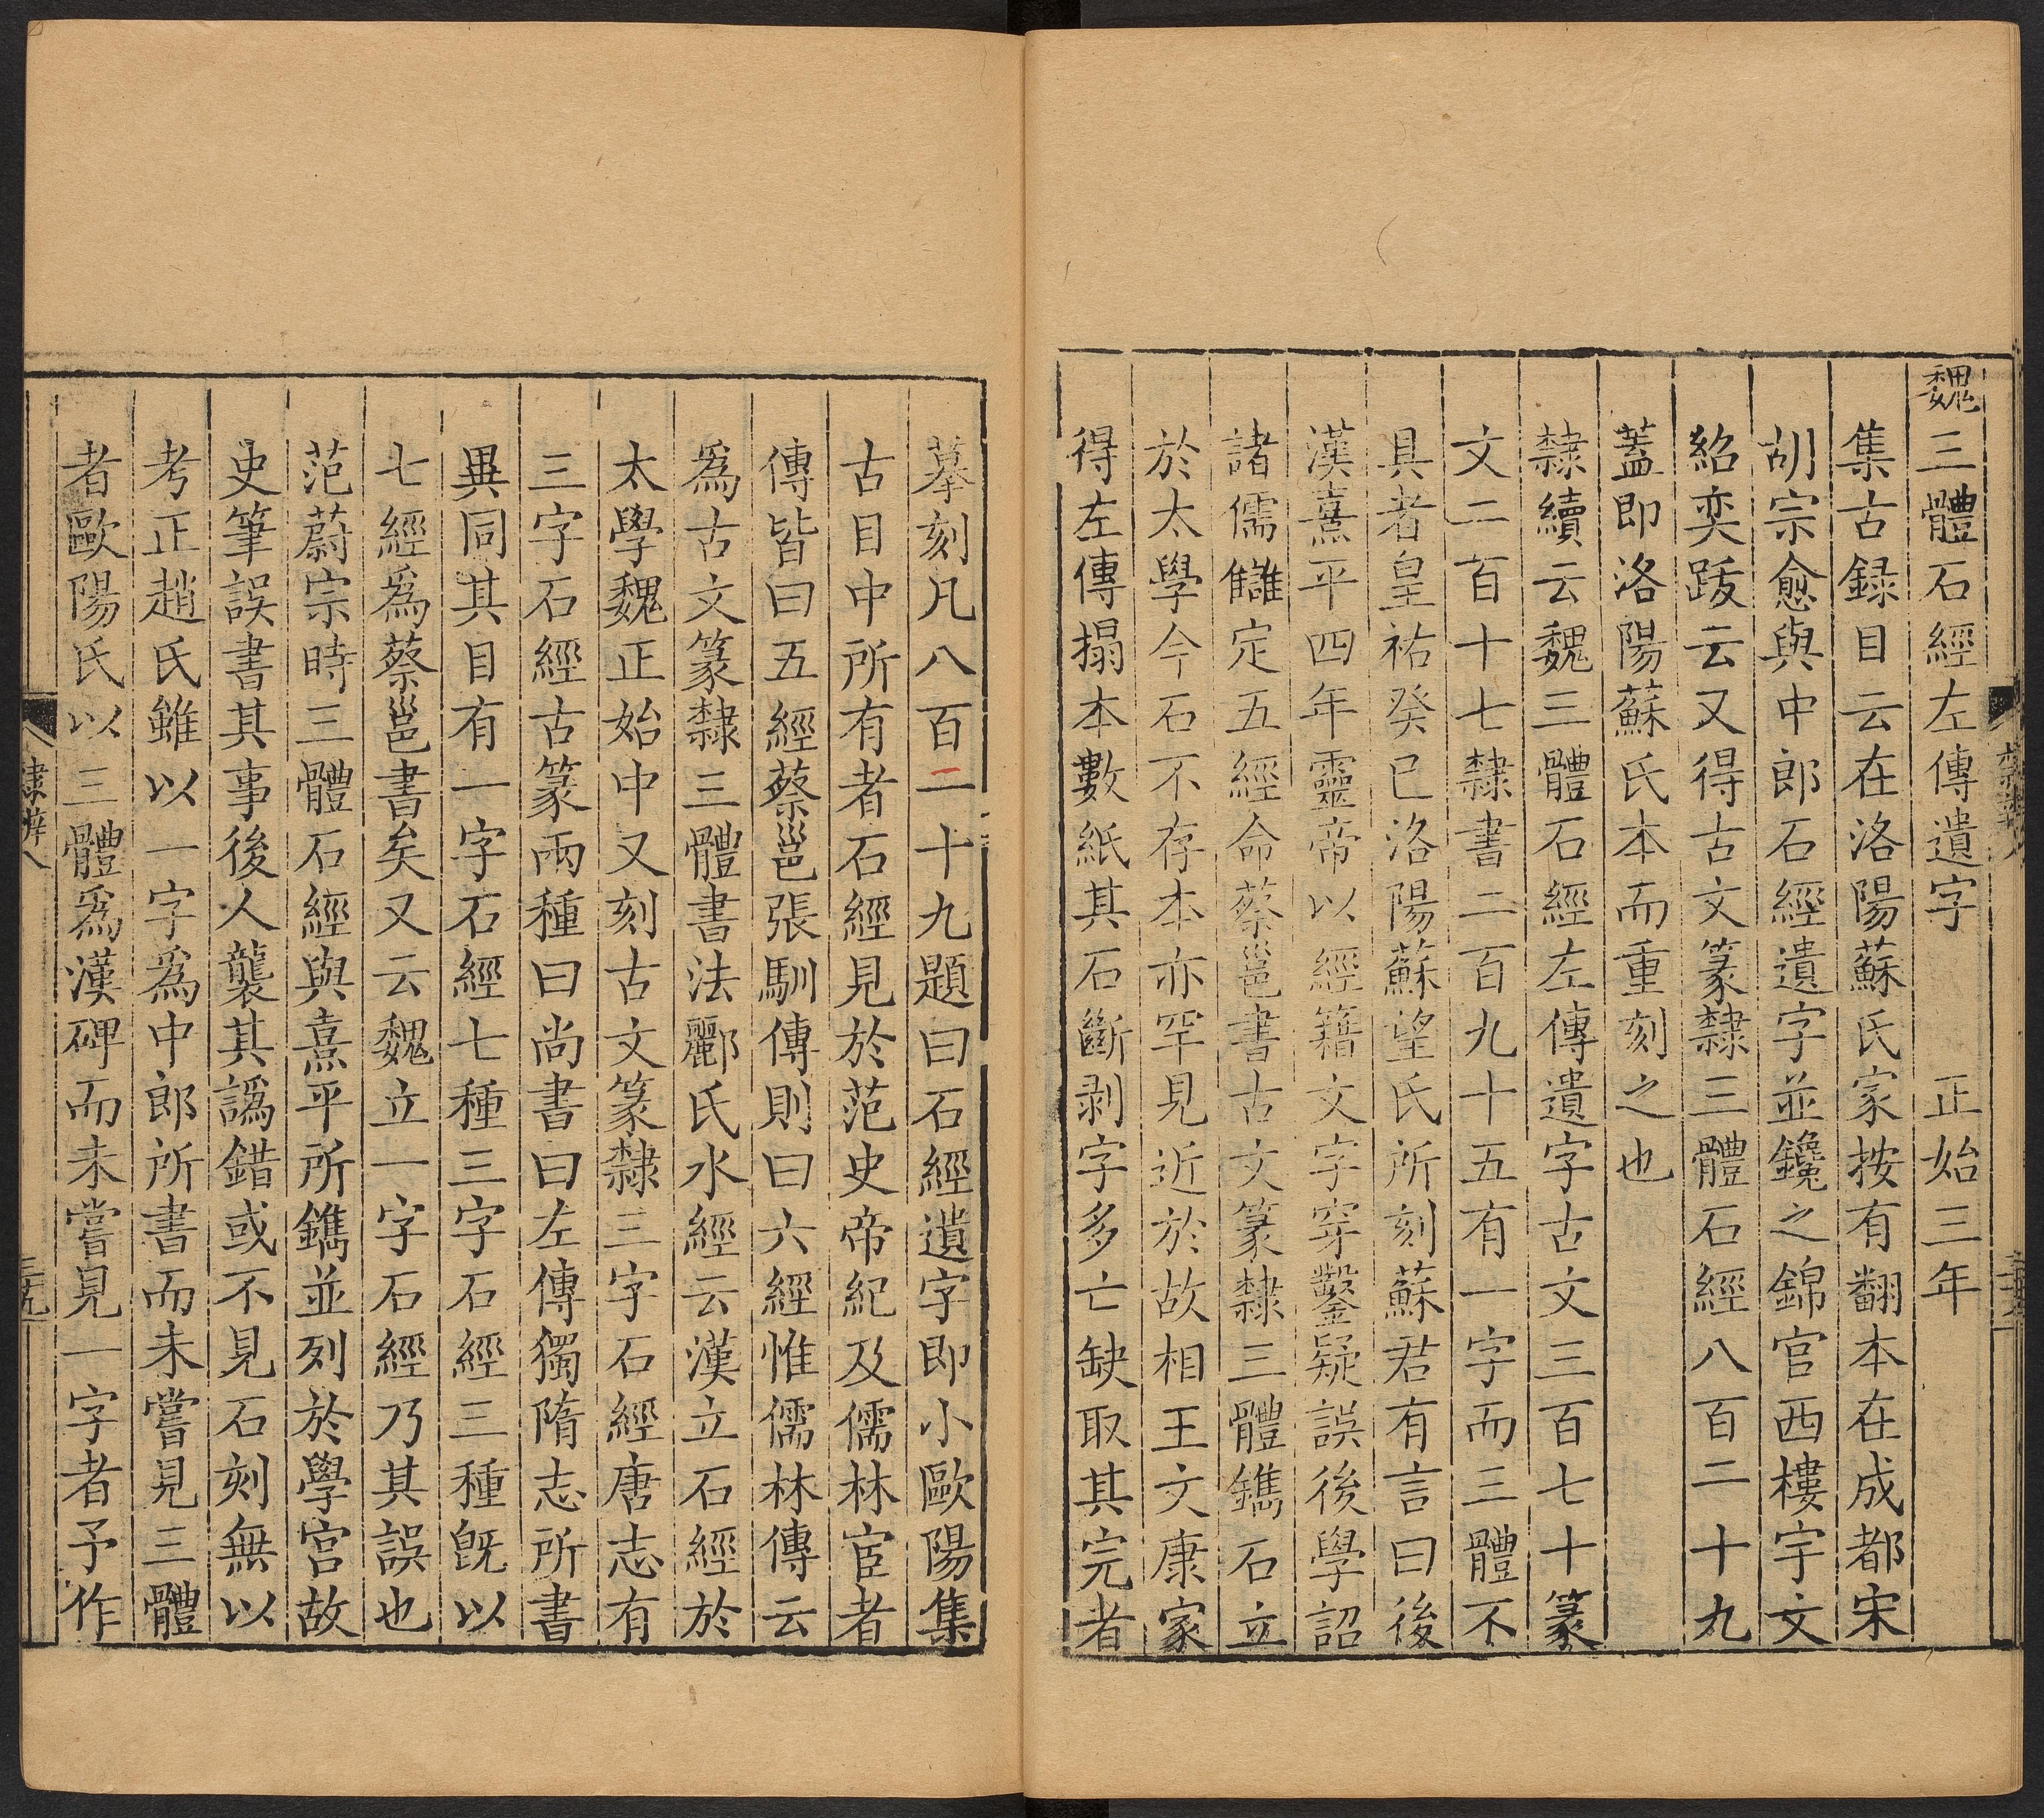 魏三體石經左傳遺字 正始三年
集古録目云在洛陽蘇氏家按有翻本在成都宋
胡宗愈與中郎石經遺字並鑱之錦官西樓宇文
紹奕跋云又得古文篆隸三體石經八百二十九
蓋即洛陽蘇氏本而重刻之也
隸續云魏三體石經左傳遺字古文三百七十篆
文二百十七隸書二百九十五有一字而三體不
具者皇祐癸巳洛陽蘇望氏所刻蘇君有言曰後
漢熹平四年靈帝以經籍文字穿鑿疑誤後學詔
諸儒讎定五經命蔡邕書古文篆隸三體鐫石立
於太學今石不存本亦罕見近於故相王文康家
得左傳搨本數紙其石斷剥字多亡缺取其完者
摹刻凡八百二十九題曰石經遺字即小歐陽集
古目中所有者石經見於范史帝紀及儒林宦者
傳皆曰五經蔡邕張馴傳則曰六經惟儒林傳云
爲古文篆隸三體書法酈氏水經云漢立石經於
太學魏正始中又刻古文篆隸三字石經唐志有
三字石經古篆兩種曰尚書曰左傳獨隋志所書
異同其目有一字石經七種三字石經三種既以
七經爲蔡邕書矣又云魏立一字石經乃其誤也
范蔚宗時三體石經與熹平所鐫並列於學宫故
史筆誤書其事後人襲其譌錯或不見石刻無以
考正趙氏雖以一字爲中郎所書而未嘗見三體
者歐陽氏以三體爲漢碑而未嘗見一字者予作
隸辨八